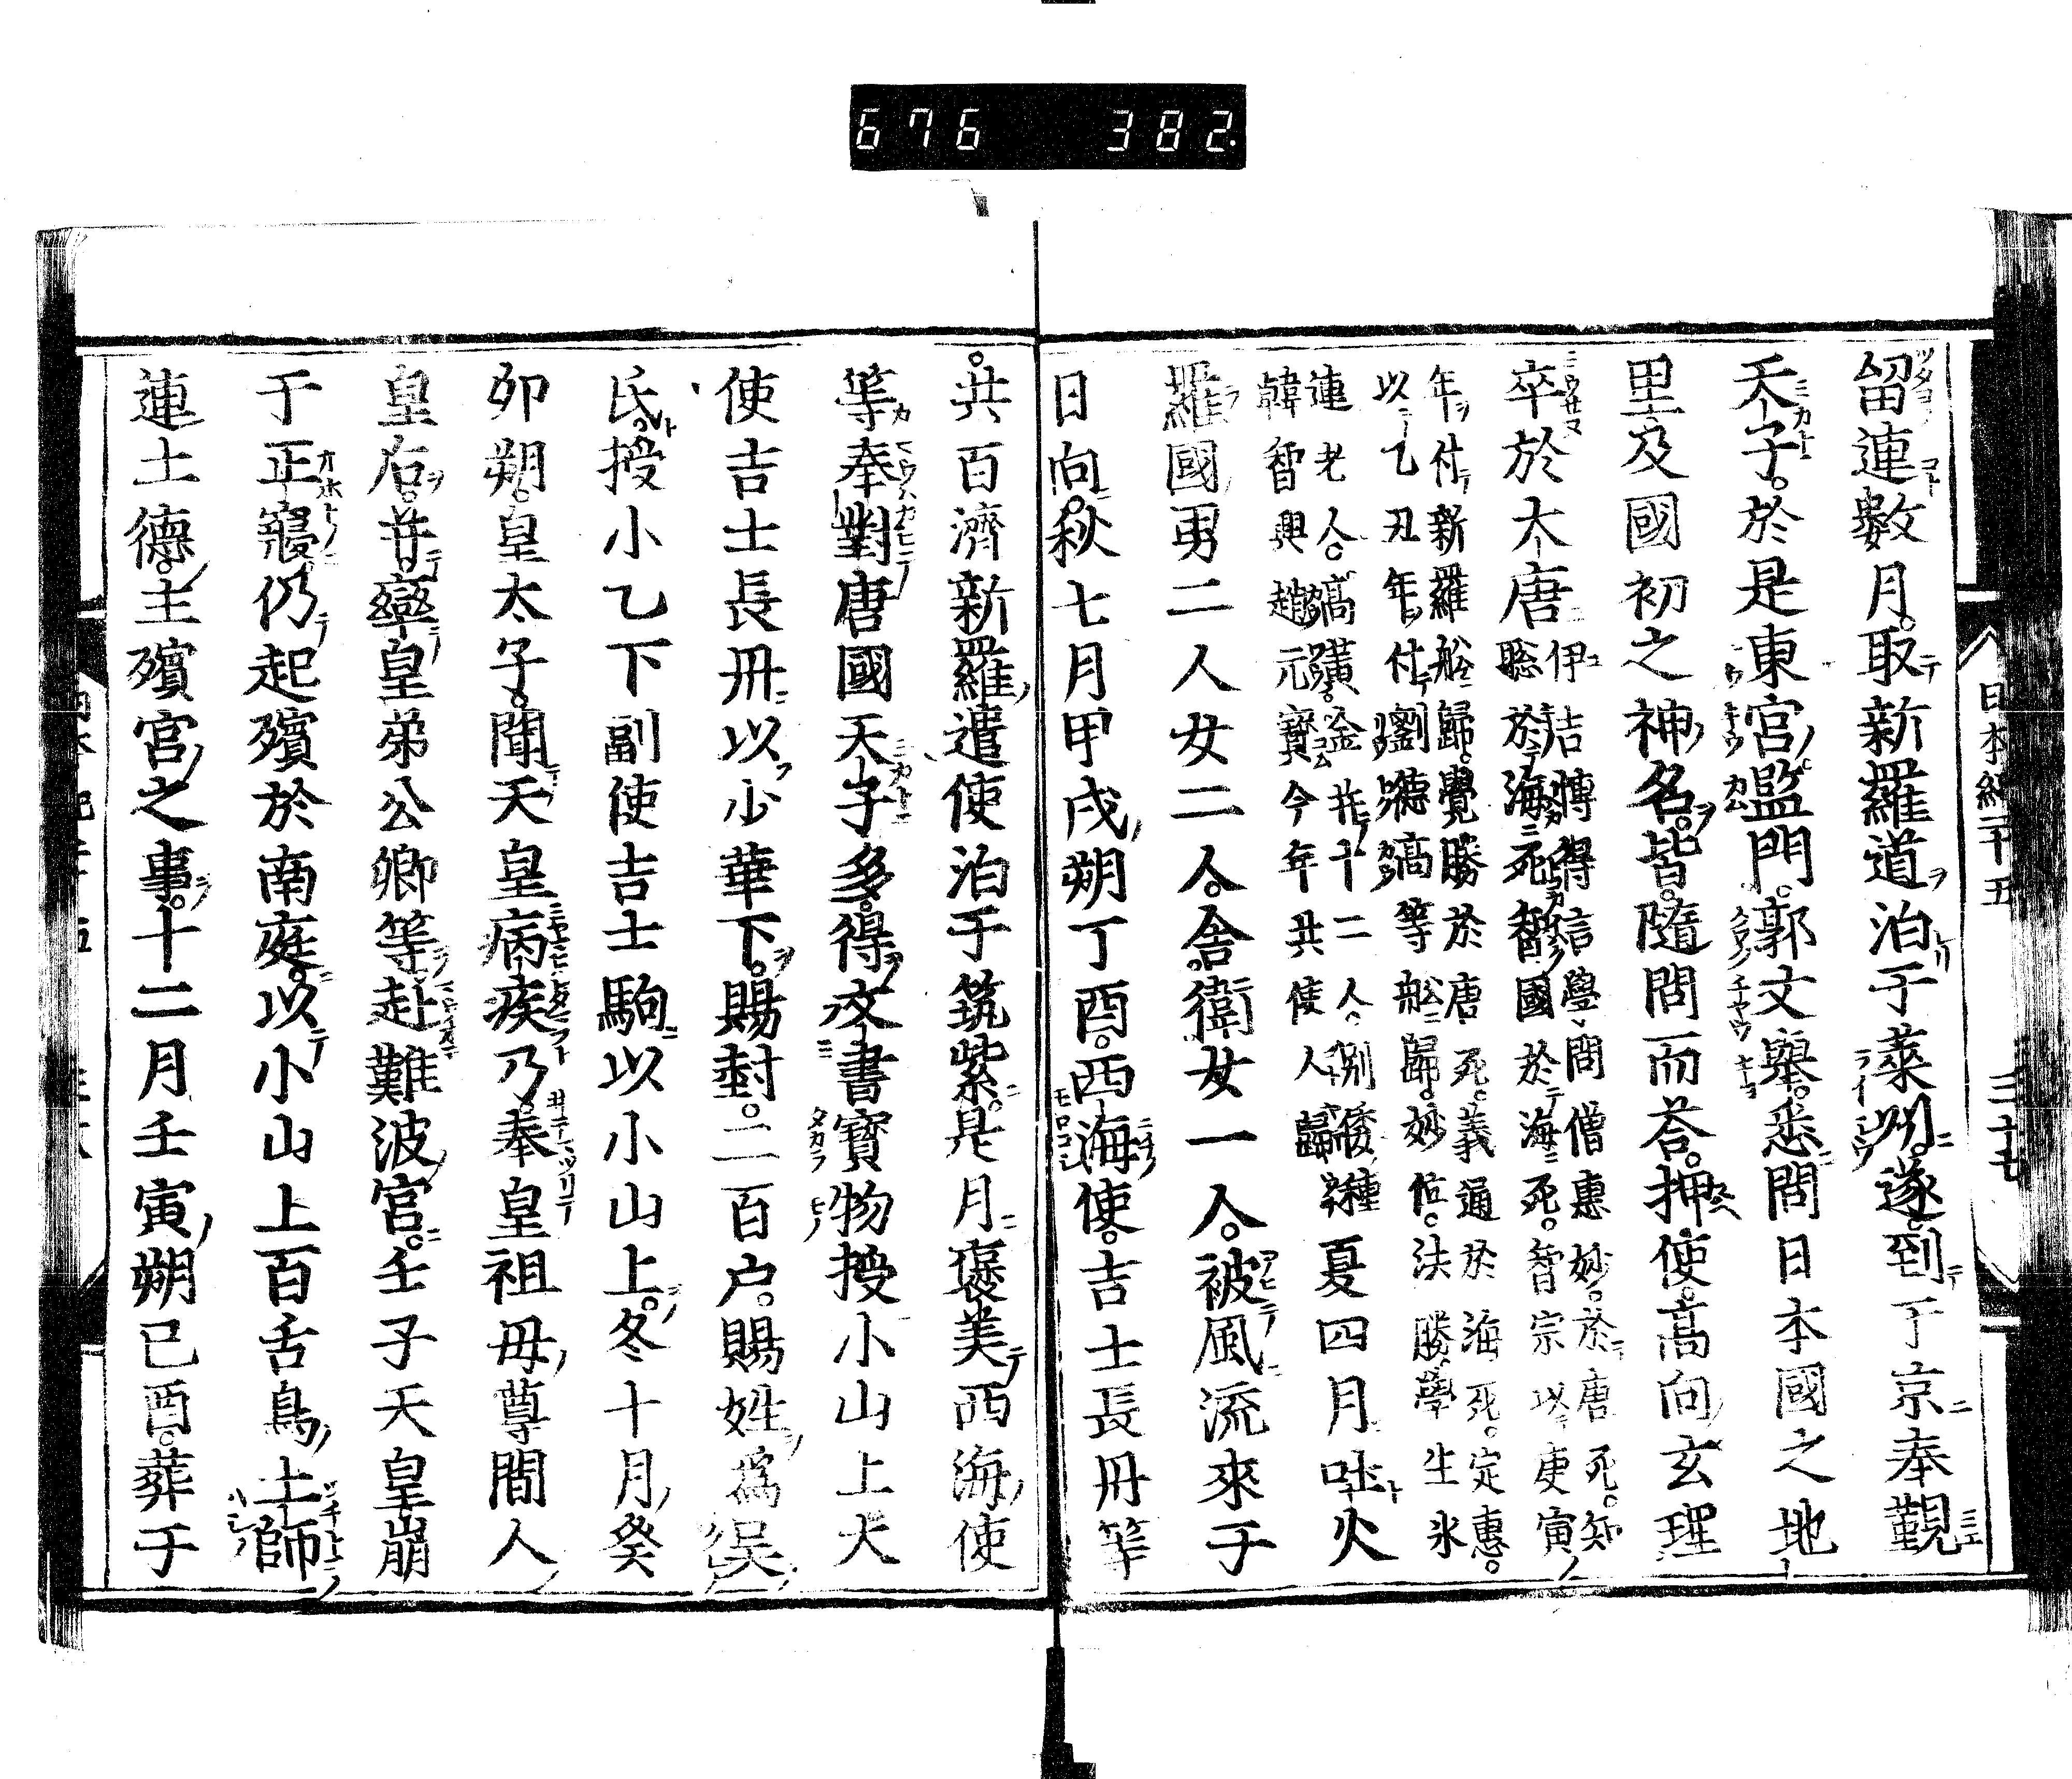 676 382
日本紀二十五 三十七
留連數月取新羅道泊于萊州遂到于京奉觀
天子於是東宮監門郭文舉悉問日本國之地
里及國初之神名皆隨問而荅押使高向玄理
卒於大唐
伊吉博得言學問僧惠妙於唐死知
聡於海死智國於海死智宗以庚寅
年付新羅舩歸覺勝於唐死義通於海死定惠
以乙丑年付劉德高等舩歸妙位法勝學生氷
連老人高黃金并十二人別倭種
韓智興趙元寶今年共使人歸
夏四月吐火
羅國男二人女二人舎衛女一人被風流來于
日向秋七月甲戌朔丁酉西海使吉士長丹等
共百濟新羅遣使泊于筑紫是月褒美西海使
等奉對唐國天子多得文書寶物授小山上大
使吉士長丹以少華下賜封二百户賜姓為吳
氏授小乙下副使吉士駒以小山上冬十月癸
夘朔皇太子聞天皇病疾乃奉皇祖母尊間人
皇后并率皇弟公卿等赴難波宮壬子天皇崩
于正寢仍起殯於南庭以小山上百舌鳥土師
連土德主殯宮之事十二月壬寅朔己酉葬于